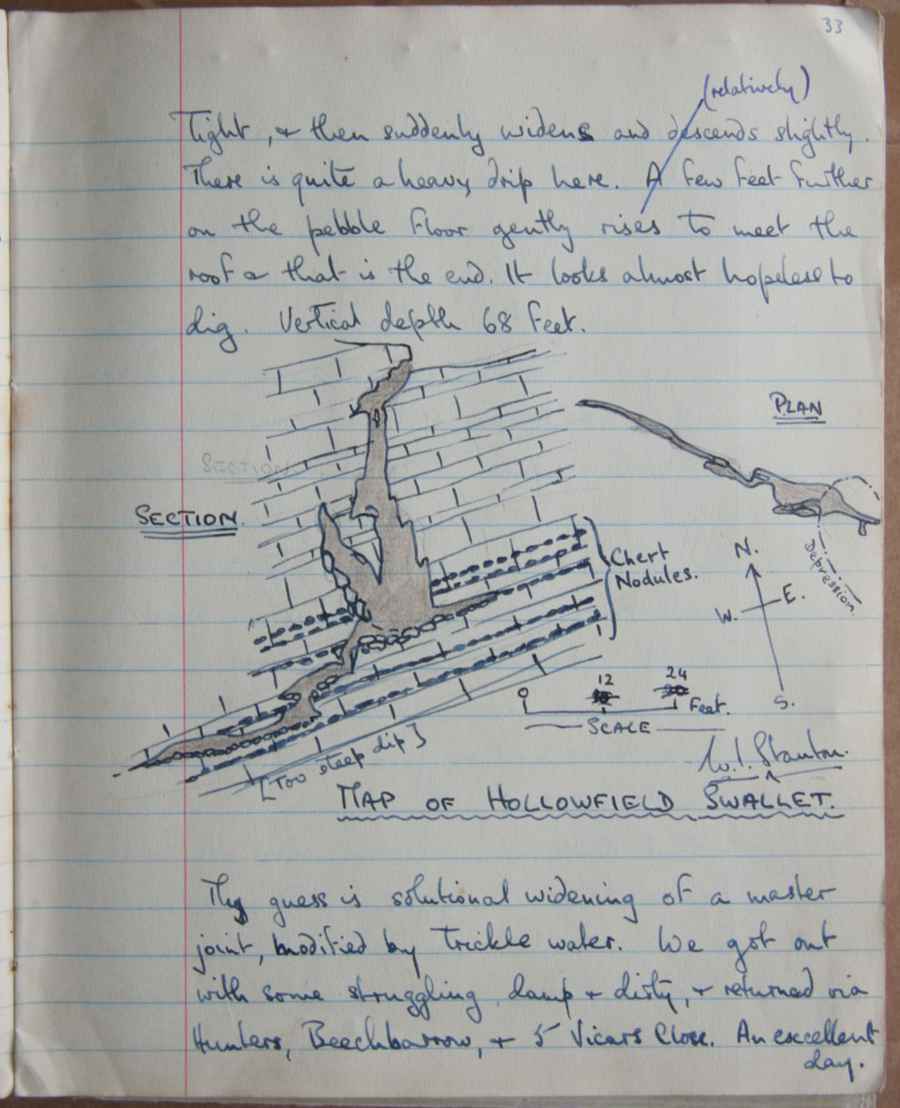 33
(relatively)
Tight, & then suddenly widens and descends slightly.
There is quite a heavy drip here. A few feet further
on the pebble floor gently rises to meet the
roof & that is the end. It looks almost hopeless to
dig. Vertical depth 68 feet.
PLAN
SECTION
SECTION
Chert
Nodules.
Depression
N.
W.
E.
S.
0
12
24
Feet.
SCALE
[Too steep dip]
W.I. Stanton.
MAP OF HOLLOWFIELD SWALLET.
My guess is solutional widening of a master
joint, modified by trickle water. We got out
with some struggling, damp & dirty, & returned via
Hunters, Beechbarrow, & 5 Vicars Close. An excellent
day.